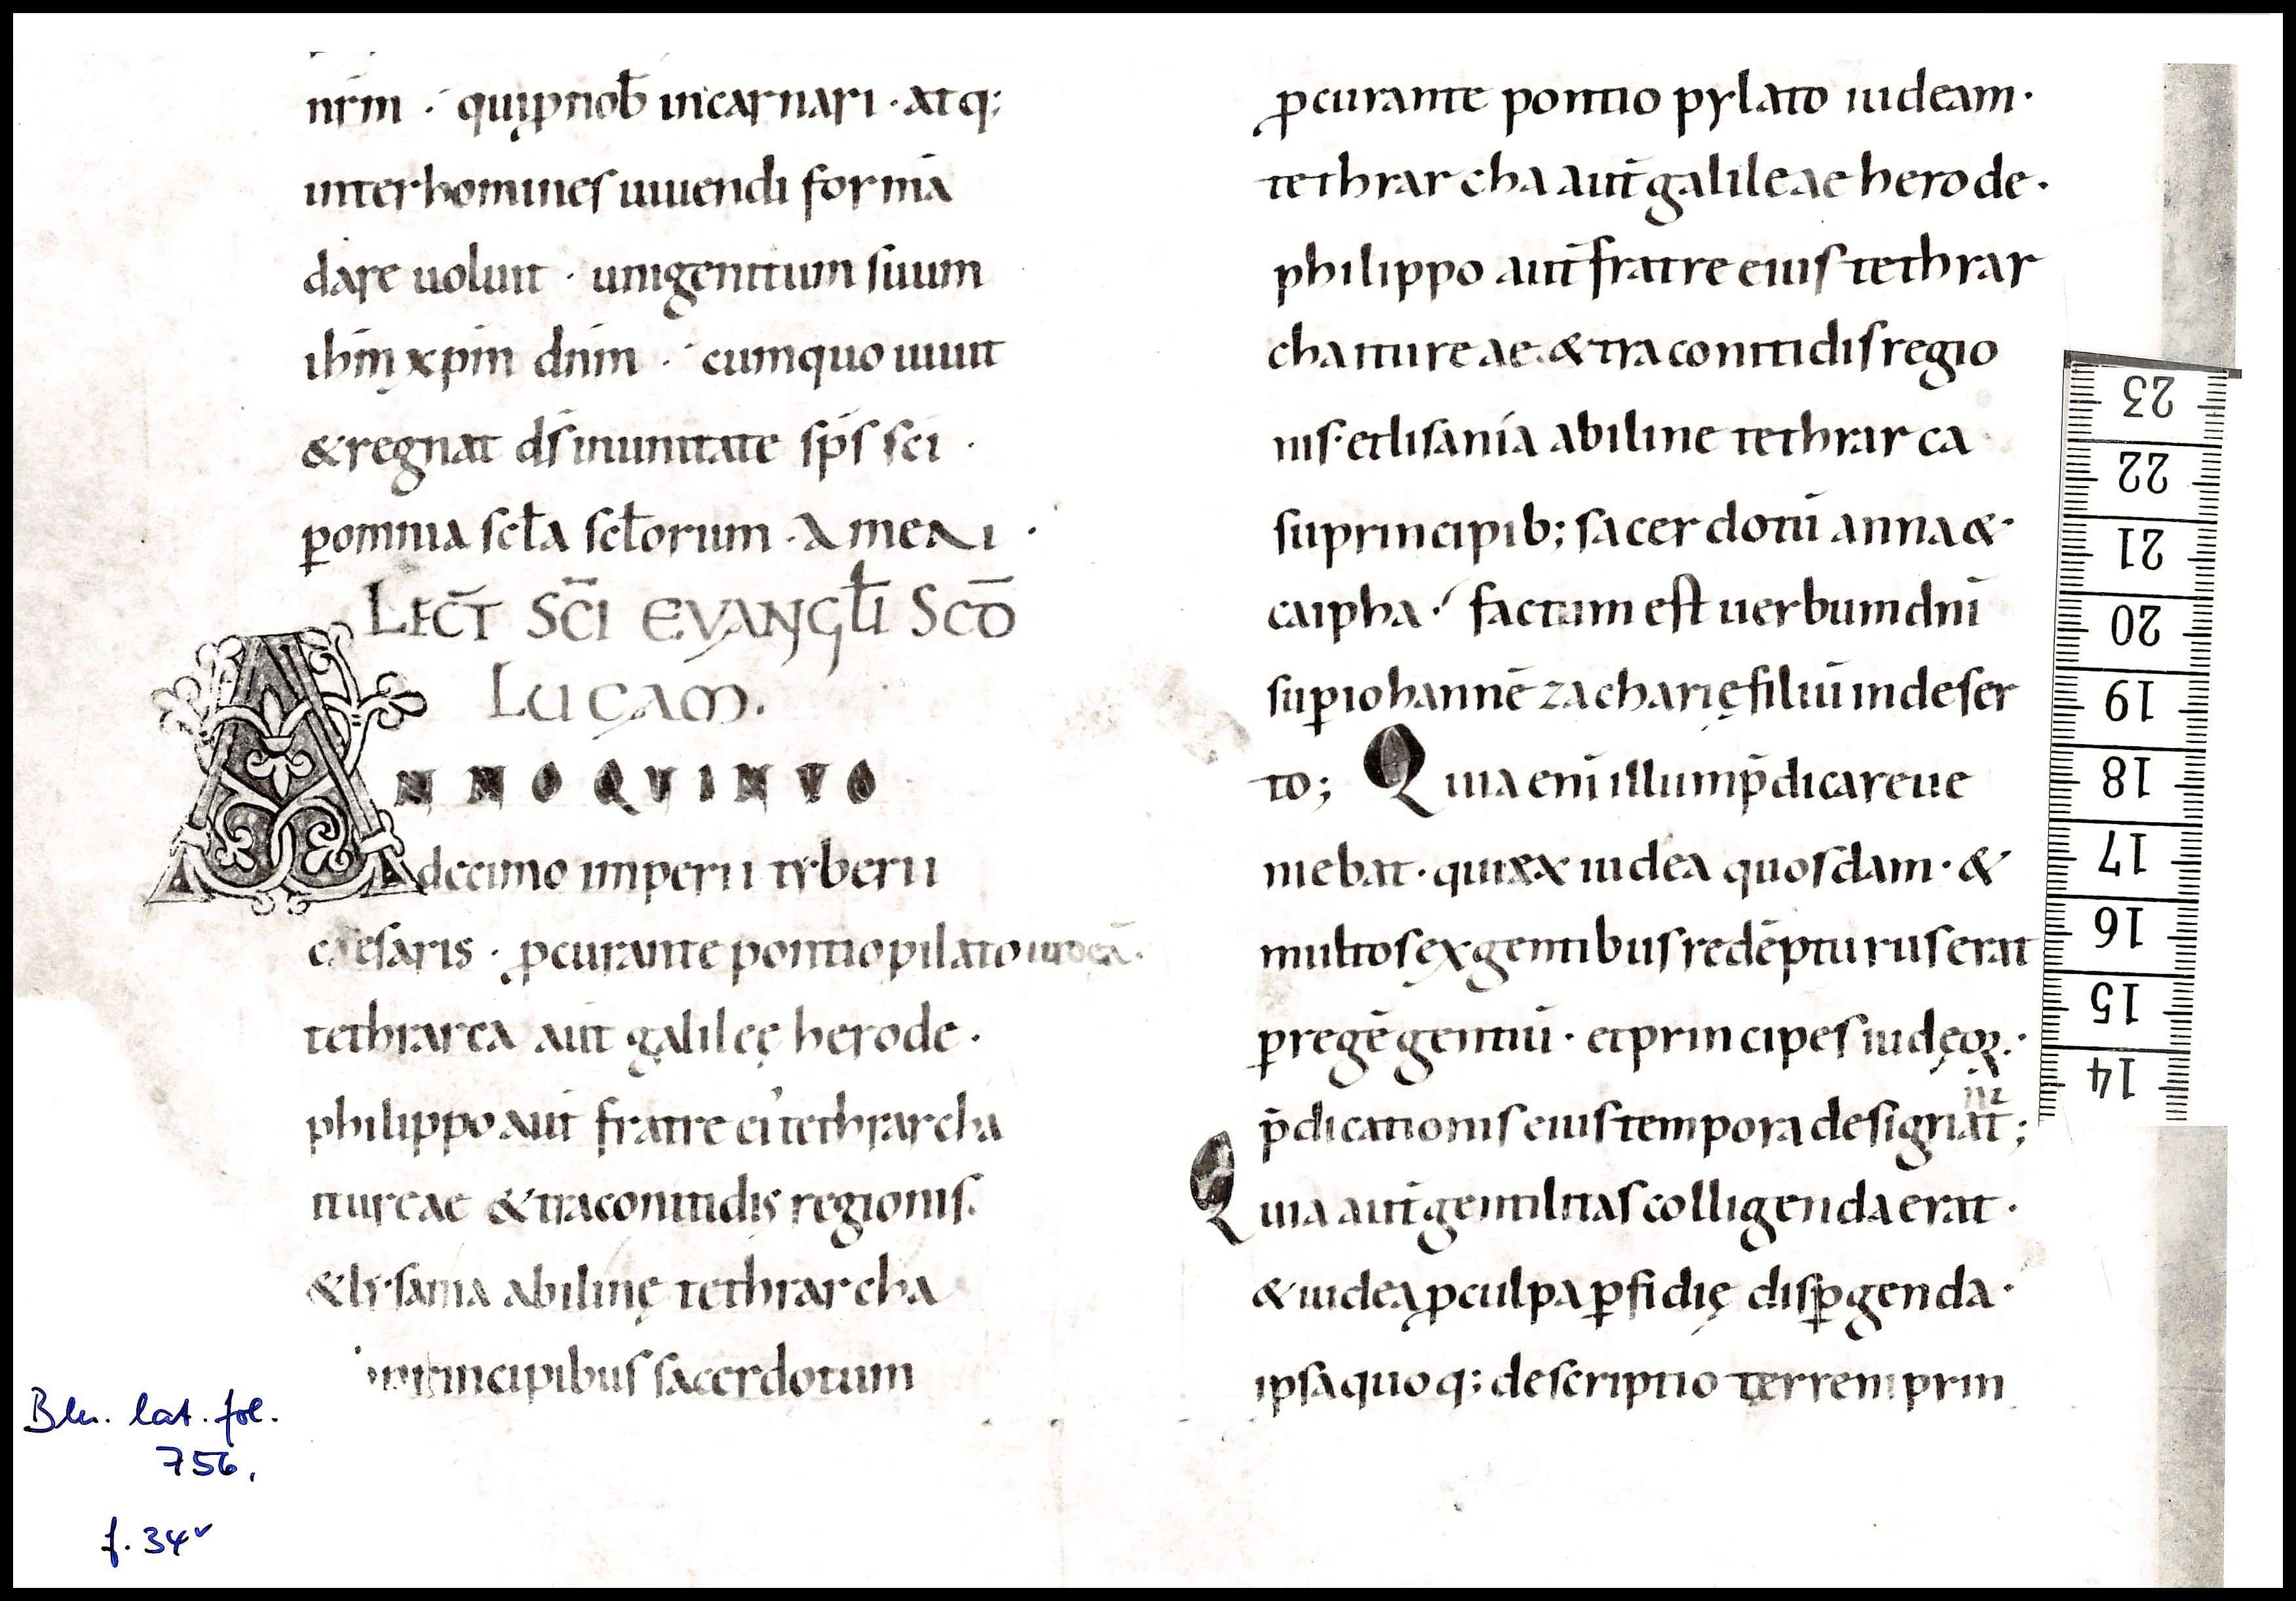 nr̄m · quip̱ nob̄ incarnari · atq;
inter homines uiuendi formā
dare uoluit · unigenitum suum
ih̄m xp̄m dn̄m · cum quo uiuit
& regnat d̄s in unitate sp̄s sc̄i ·
ꝑ omnia scła scłorum · AMEN ·
LECT̄ SC̄I EVANGLI SCD̄
LUCAM.
ANNO QVINTO
decimo imperii tyberii
caesaris · ꝓcurante pontio pilato iudeā ·
tethrarca aut̄ galileę herode ·
philippo aut̄ fratre ei' tethrarcha
itureae & traconitidis regionis.
& lysania abilinę tethrarcha
principibus sacerdotum
ꝓcurante pontio pylato iudeam ·
tethrarcha aut̄ galileae herode ·
philippo aut̄ fratre eius tethrar
cha itureae · & traconitidis regio
nis · et lisania abiline tethrarca
su̅ principib; sacerdotū anna &
caipha · factum est uerbum dn̄i
suꝑ iohannē zacharię filiū in deser
to; Quia eni̅ illum p̄dicare ue
niebat · qui & ex iudea quosdam · &
multos ex gentibus redēpturus erat
ꝑ regē gentiū · et principes iudęoꝝ ·
p̄dicationis eius tempora designat̄;
Quia aut̄ gentilitas colligenda erat ·
& iudea ꝓ culpa ꝑfidię disꝑgenda ·
ipsa quoq; descriptio terreni prin
23
22
21
20
19
18
17
16
15
14
Bln. lat. fol.
756,
f. 34v